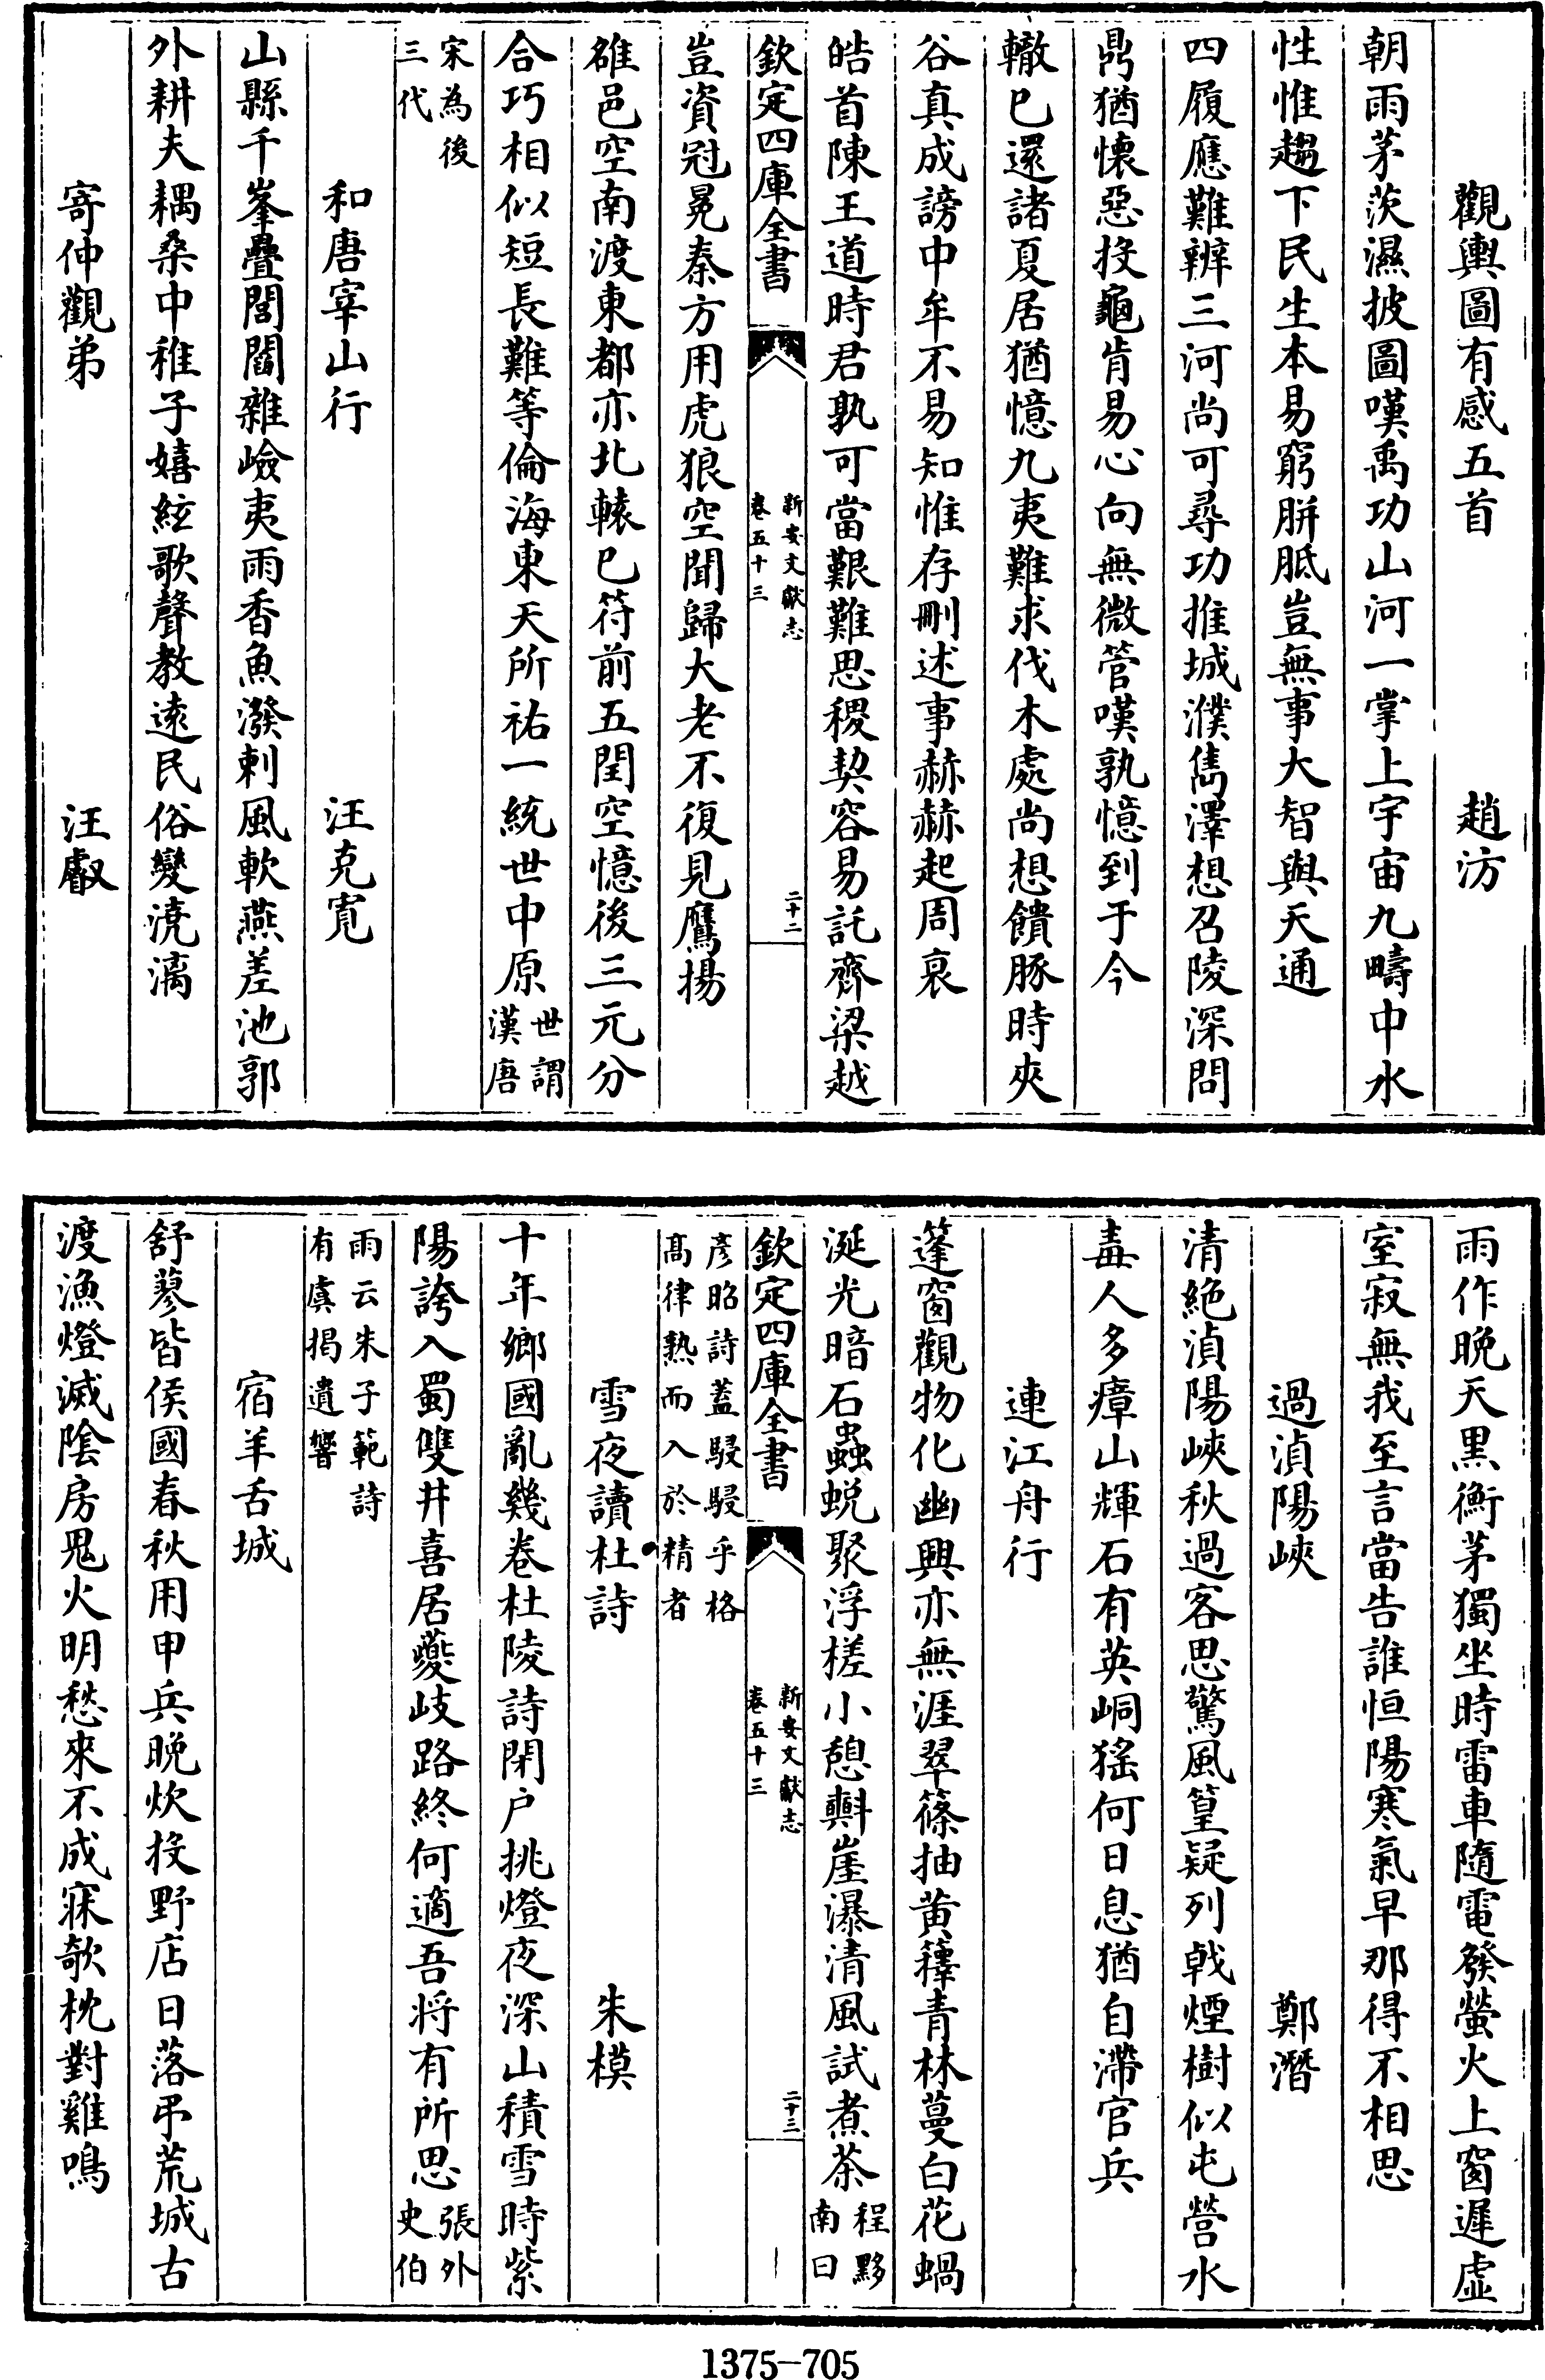 觀輿圖有感五首　趙汸
朝雨茅茨濕披圖嘆禹功山河一掌上宇宙九疇中水
性惟趨下民生本易窮胼胝豈無事大智與天通
四履應難辨三河尚可尋功推城濮雋澤想召陵深問
鼎猶懷惡投龜肯易心向無微管嘆孰憶到于今
轍已還諸夏居猶憶九夷難求伐木處尚想饋豚時夾
谷真成謗中牟不易知惟存刪述事赫赫起周衰
皓首陳王道時君孰可當艱難思稷契容易託齊梁越
欽定四庫全書　新安文獻志　卷五十三　二十二
豈資冠冕秦方用虎狼空聞歸大老不復見鷹揚
雒邑空南渡東都亦北轅已符前五閏空憶後三元分
合巧相似短長難等倫海東天所祐一統世中原世謂漢唐
宋為後三代
和唐宰山行　汪克寬
山縣千峯疊閭閻雜嶮夷雨香魚潑剌風軟燕差池郭
外耕夫耦桑中稚子嬉絃歌聲教遠民俗變澆漓
寄仲觀弟　汪叡
雨作晚天黑衡茅獨坐時雷車隨電發螢火上窗遲虛
室寂無我至言當告誰恒陽寒氣早那得不相思
過湞陽峽　鄭潛
清絶湞陽峽秋過客思驚風篁疑列戟煙樹似屯營水
毒人多瘴山輝石有英峒猺何日息猶自滯官兵
連江舟行
篷窗觀物化幽興亦無涯翠篠抽黄籜青林蔓白花蝸
涎光暗石蟲蜕聚浮槎小憩㪺崖瀑清風試煮茶程黟南曰
欽定四庫全書　新安文獻志　卷五十三　二十三
彦昭詩蓋駸駸乎格高律熟而入於精者
雪夜讀杜詩　朱模
十年鄉國亂幾卷杜陵詩閉户挑燈夜深山積雪時紫
陽誇入蜀雙井喜居夔岐路終何適吾將有所思張外史伯
雨云朱子範詩有虞揭遺響
宿羊舌城
舒蓼皆侯國春秋用甲兵晚炊投野店日落弔荒城古
渡漁燈滅陰房鬼火明愁來不成寐欹枕對雞鳴
1375－705